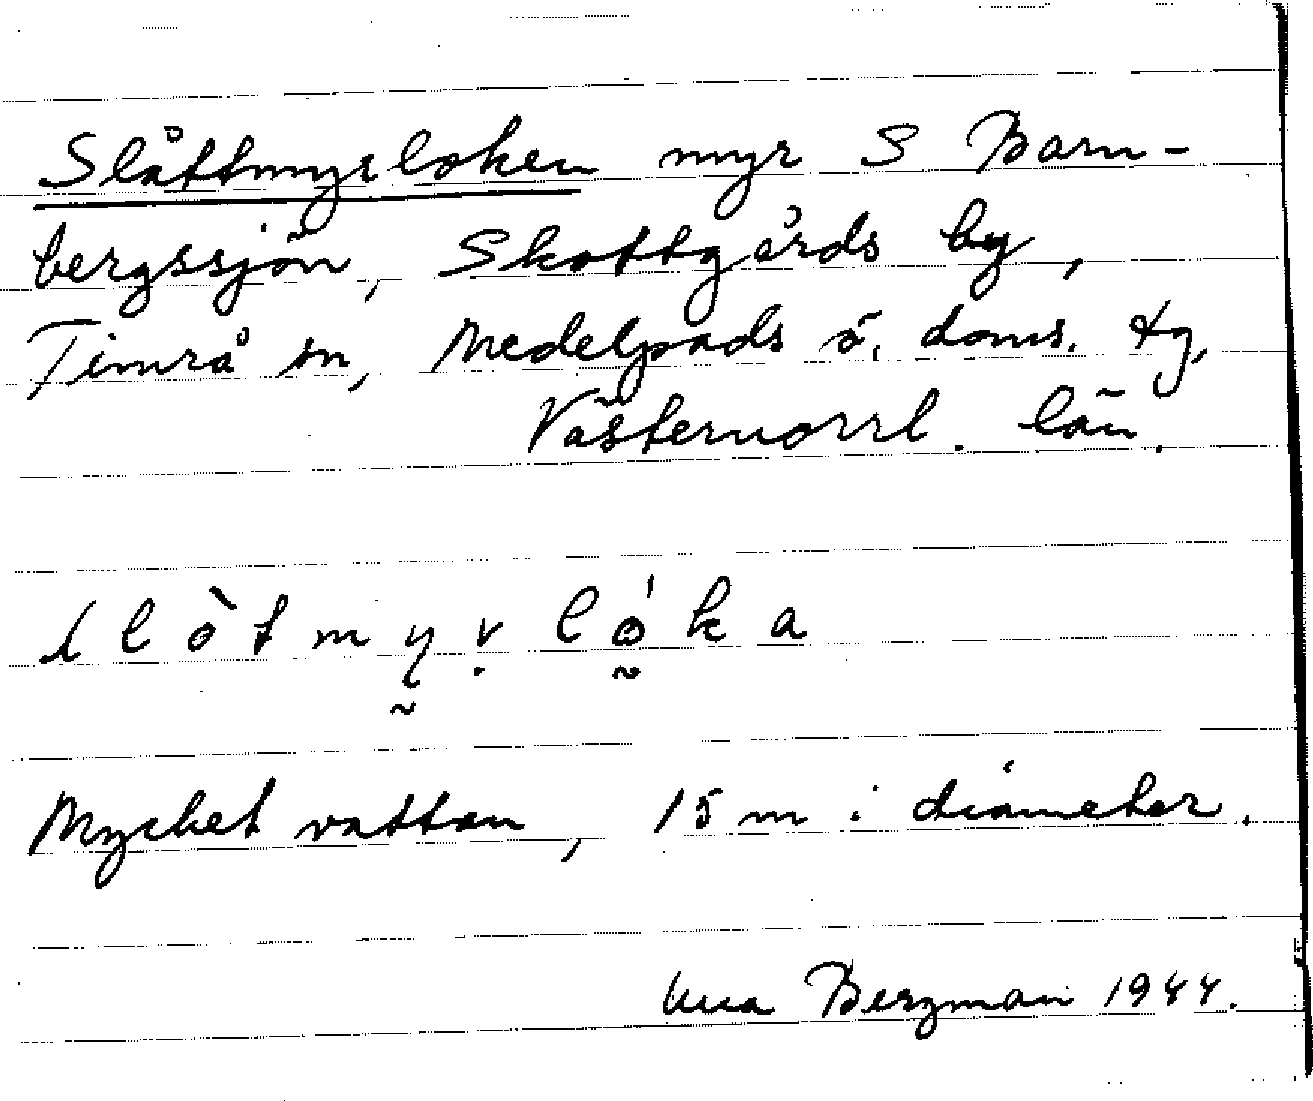 Slåttmyrloken myr S Barn-
bergssjön, Skottgårds by,
Timrå sn, Medelpads ö. doms. tg,
Västernorrl. län.
slòtmy̰ṛló̰ka
Mycket vatten, 15 m i diameter.
Bergman 1944.